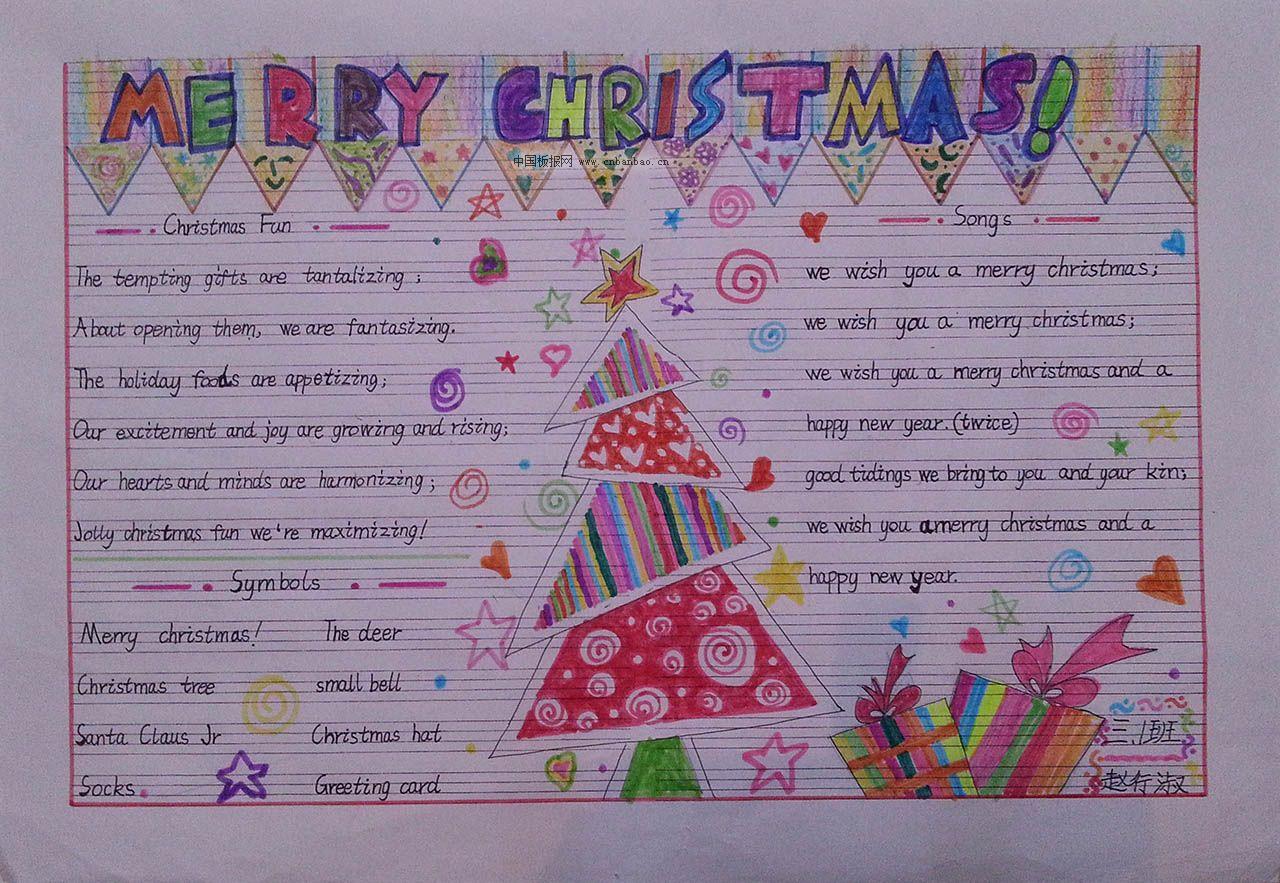 MERRY CHRISTMAS!
中国板报网 www.cnbanbao.cn
Christmas Fun
The tempting gifts are tantalizing;
About opening them, we are fantasizing.
The holiday foods are appetizing;
Our excitement and joy are growing and rising;
Our hearts and minds are harmonizing;
Jolly christmas fun we're maximizing!
Symbols
Merry christmas! The deer
Christmas tree small bell
Santa Claus Jr Christmas hat
Socks Greeting card
Songs
we wish you a merry christmas;
we wish you a merry christmas;
we wish you a merry christmas and a
happy new year.(twice)
good tidings we bring to you and your kin;
we wish you a merry christmas and a
happy new year.
三.1班
赵行淑